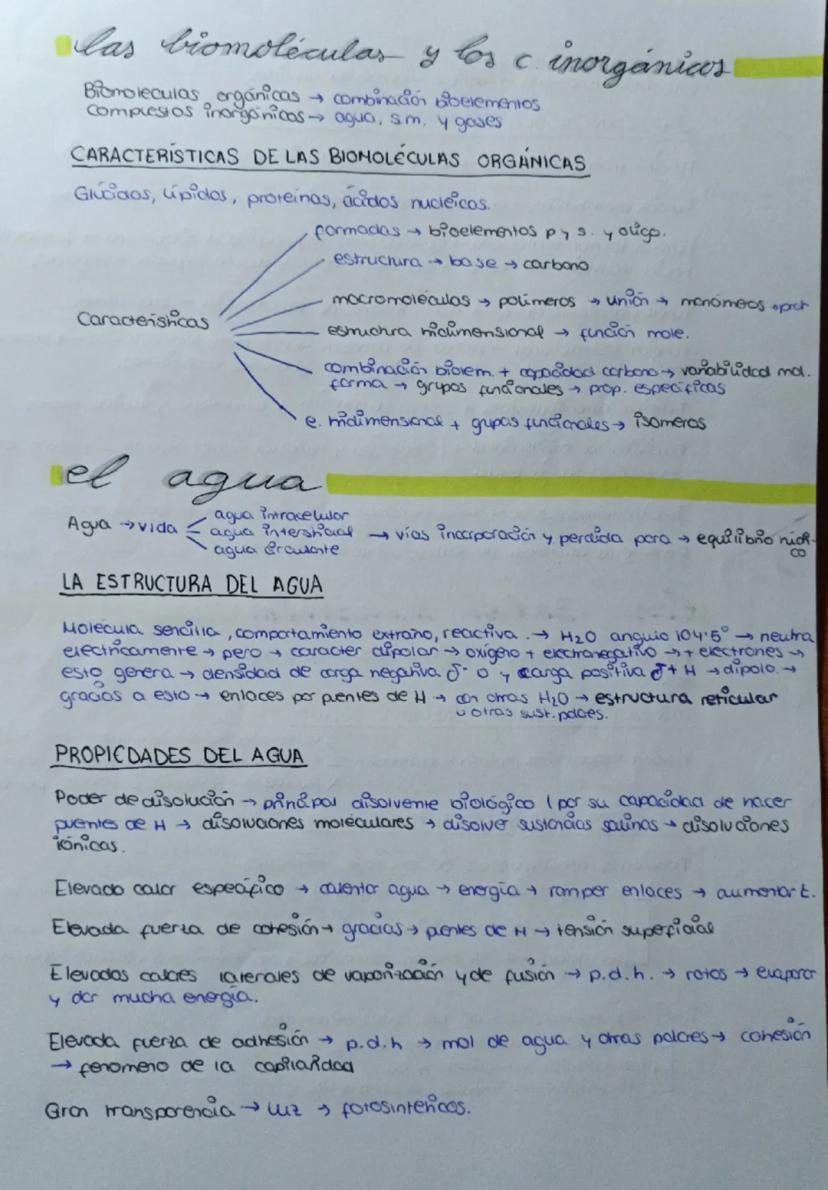 las biomoléculas y los c inorgánicos
Biomoleculas orgánicas → combinación bioelementos
Compuestos inorgánicos → agua, s.m. y gases
CARACTERÍSTICAS DE LAS BIOMOLÉCULAS ORGÁNICAS
Glúcidos, Lípidos, proteínas, ácidos nucleicos.
formadas → bioelementos p y s. y oligo.
estructura → base → carbono
macromoléculas → polímeros → unión → monómeos
Características
estructura tridimensional → función mole.
combinación bioem. + capacidad carbono → variabilidad mol.
forma → grupos funcionales → prop. específicas
e. tridimensional + grupos funcionales → isomeros
el agua
agua intracelular
Agua → vida agua intersticial → vías incorporación y perdida para → equilibrio hídri-
co
agua circulante
LA ESTRUCTURA DEL AGUA
Molécula sencilla, comportamiento extraño, reactiva. → H2O angulo 104'5° → neutra
electricamente → pero → caracter dipolar → oxígeno + electronegativo → + electrones →
esto genera → densidad de carga negativa δ- O y carga positiva δ+ H → dipolo. →
gracias a esto → enlaces por puentes de H → con otras H2O → estructura reticular
u otras sust. polares.
PROPIEDADES DEL AGUA
Poder de disolución → principal disolvente biológico (por su capacidad de hacer
puentes de H → disoluciones moléculares → disolver sustancias salinas → disoluciones
iónicas.
Elevado calor específico → calentar agua → energía → romper enlaces → aumentar t.
Elevada fuerza de cohesión → gracias → pentes de H → tensión superficial
Elevados calores laterales de vaporización y de fusión → p.d.h. → rotos → evaporar
y dar mucha energía.
Elevada fuerza de adhesión → p.d.h → mol de agua y otras polares → cohesión
→ fenomeno de la capilaridad
Gran transparencia → luz → fotosinteticos.